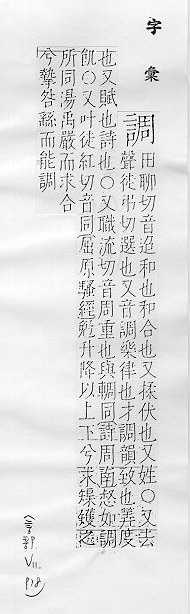 字彙
調
田聊切音迢和也和合也又揉伏也又姓〇又去
聲徒弔切選也又音調樂律也才調韻致也筭度
也又賦也詩也〇又職流切音周重也與輖同詩周南惄如調
飢〇又叶徒紅切音同屈原騷經勉升降以上下兮求榘矱之
所同湯禹嚴而求合
兮摯咎繇而能調